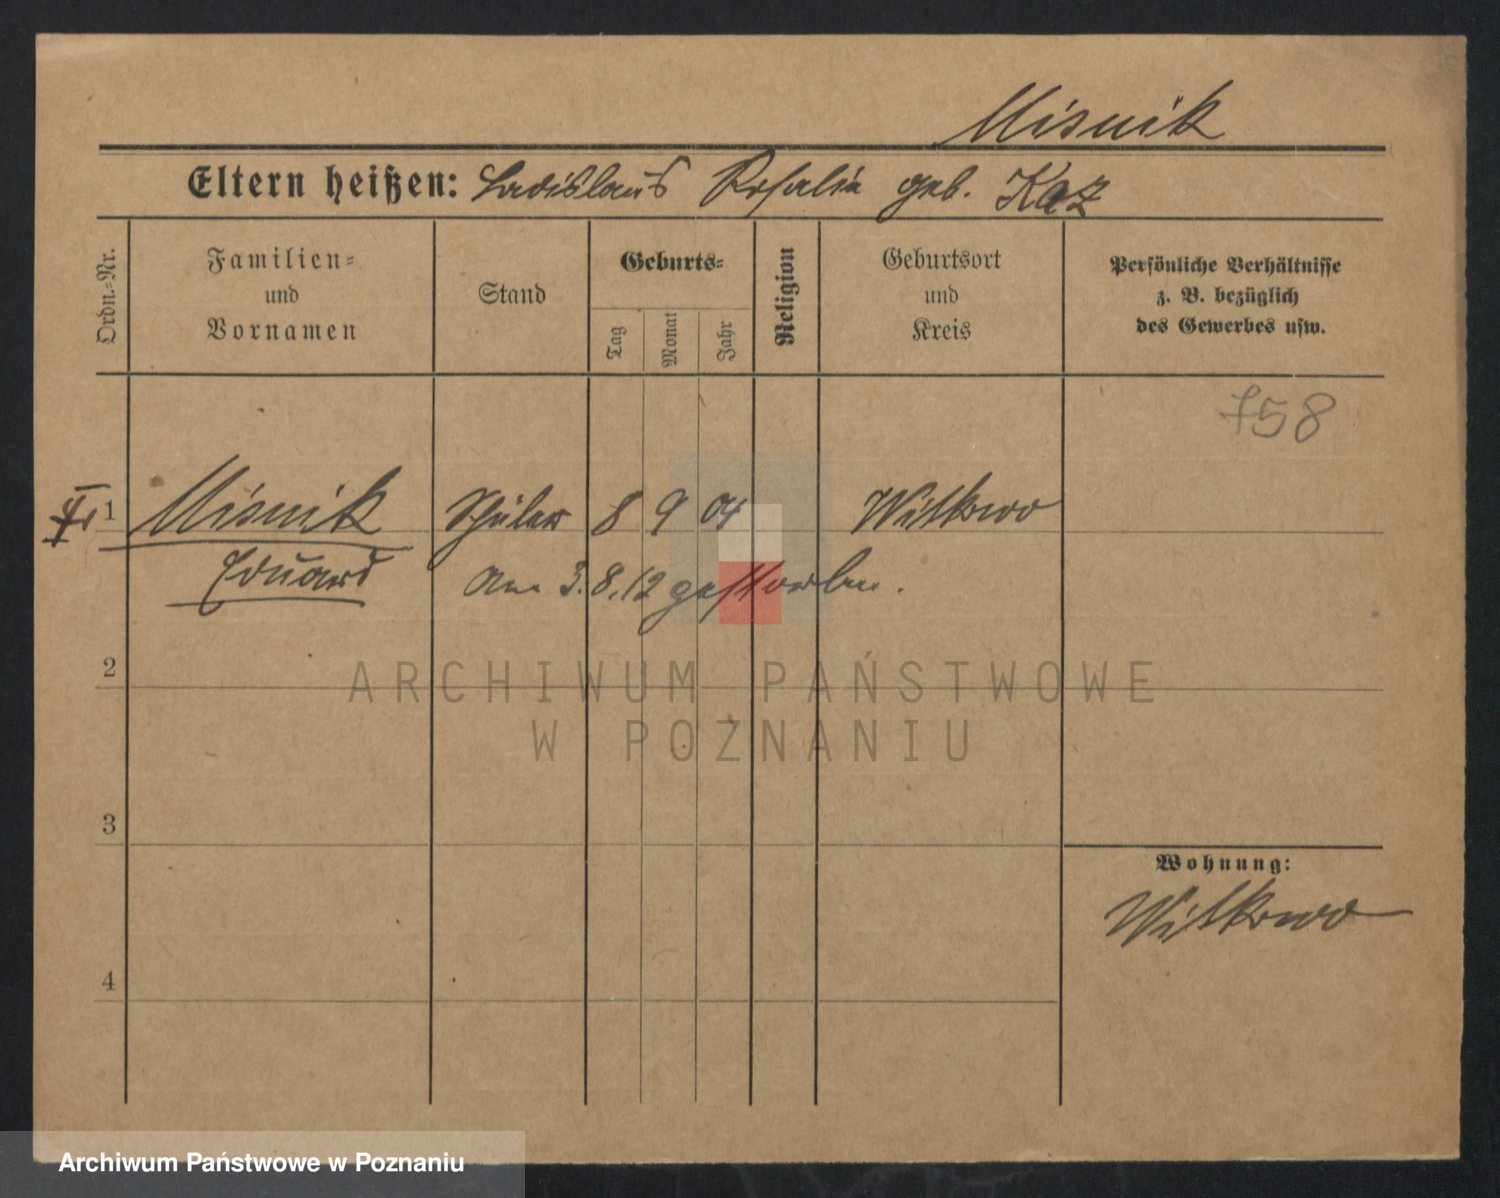 Misnik
Eltern heißen: Ladislaus Rosalia geb. Kaz
Ordn.-Nr.
Familien-
und
Vornamen
Stand
Geburts-
Tag
Monat
Jahr
Religion
Geburtsort
und
Kreis
Persönliche Verhältnisse
z. B. bezüglich
des Gewerbes usw.
758
1 Misnik Schüler 8 9 04 Witkowo
Eduard am 3.8.12 gestorben.
2
3
4
Wohnung:
Witkowo
ARCHIWUM PAŃSTWOWE
W POZNANIU
Archiwum Państwowe w Poznaniu